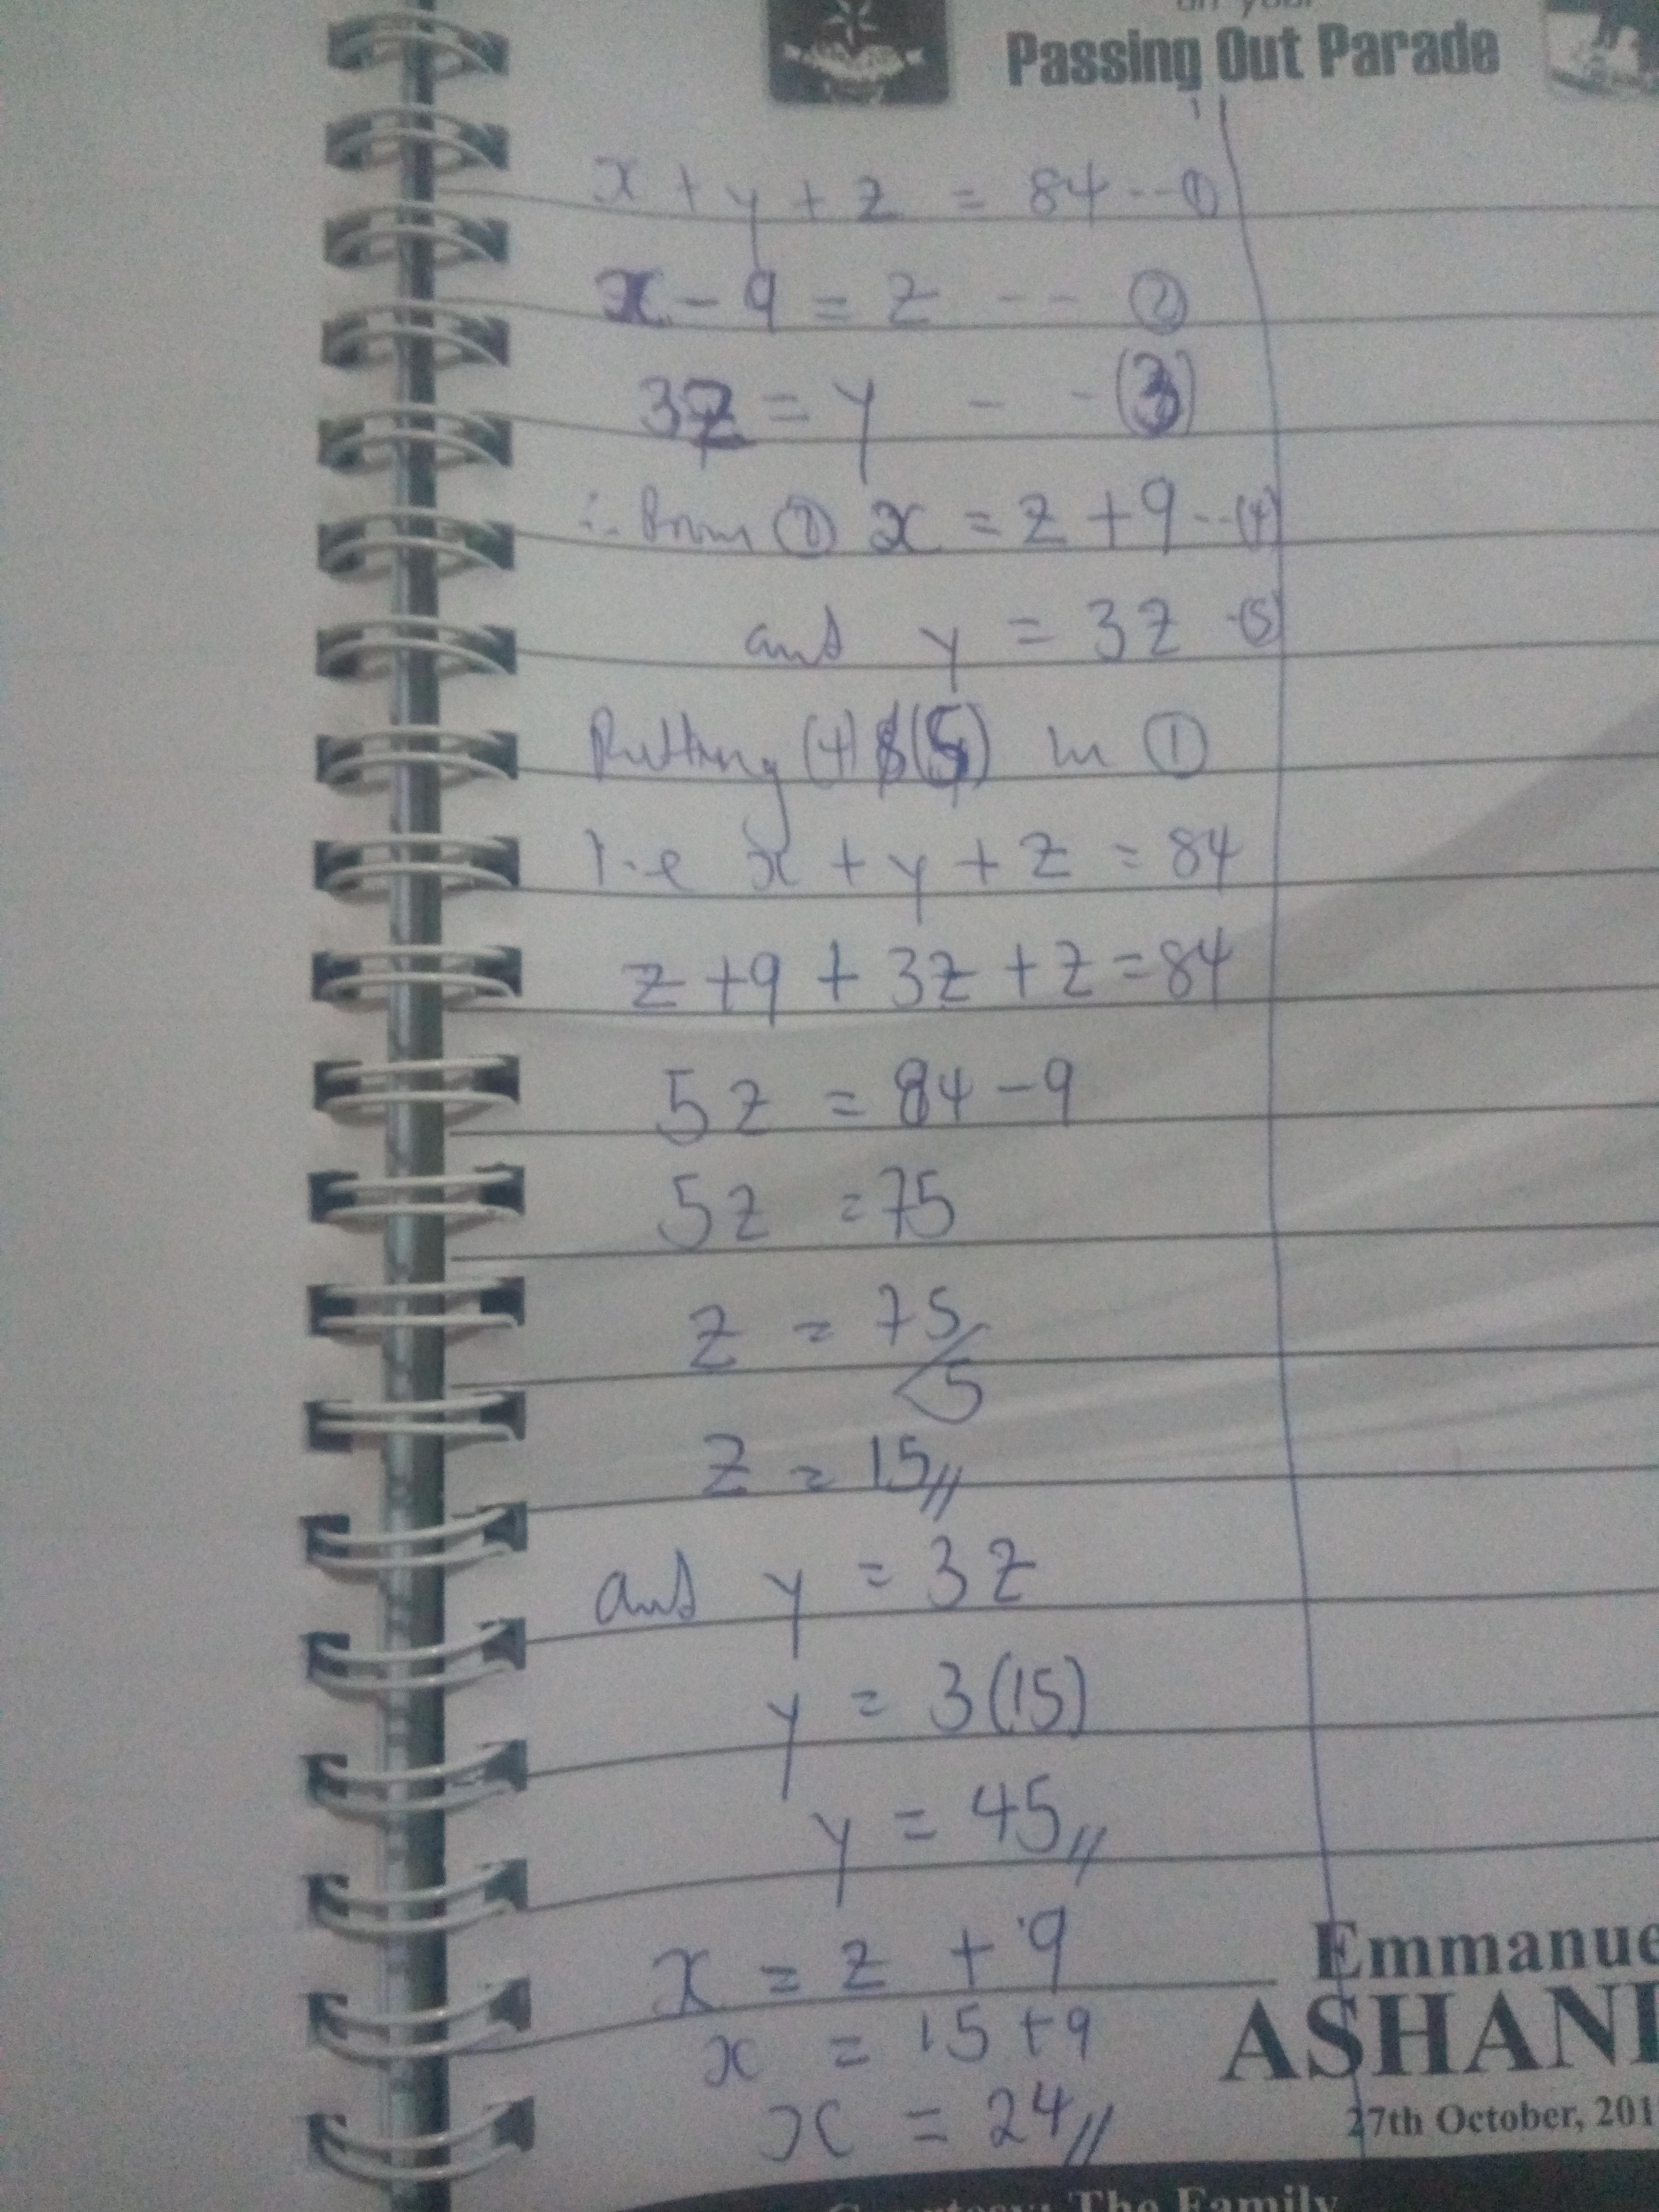 on your
Passing Out Parade
x + y + z = 84 -- ①
x - 9 = z -- ②
3z = y - - (3)
∴ From ② x = z + 9 -- (4)
and y = 3z -(5)
Putting (4) & (5) in ①
i.e x + y + z = 84
z + 9 + 3z + z = 84
5z = 84 - 9
5z = 75
z = 75/5
z = 15//
and y = 3z
y = 3(15)
y = 45//
x = z + 9
x = 15 + 9
x = 24//
Emmanue
ASHANI
27th October, 201
Courtesy: The Family